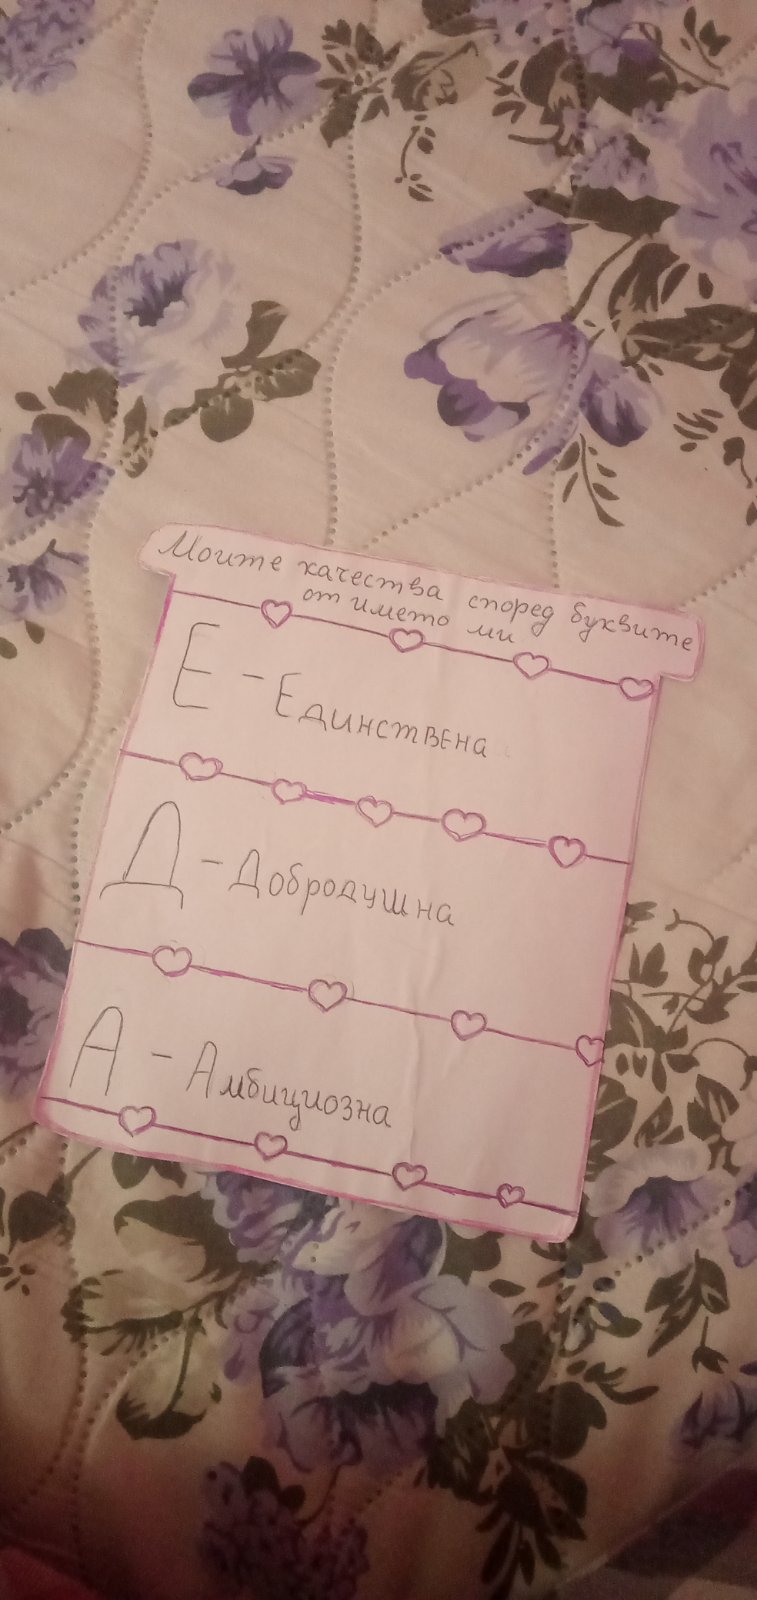 Моите качества според буквите
от името ми
Е - Единствена
Д - Добродушна
А - Амбициозна